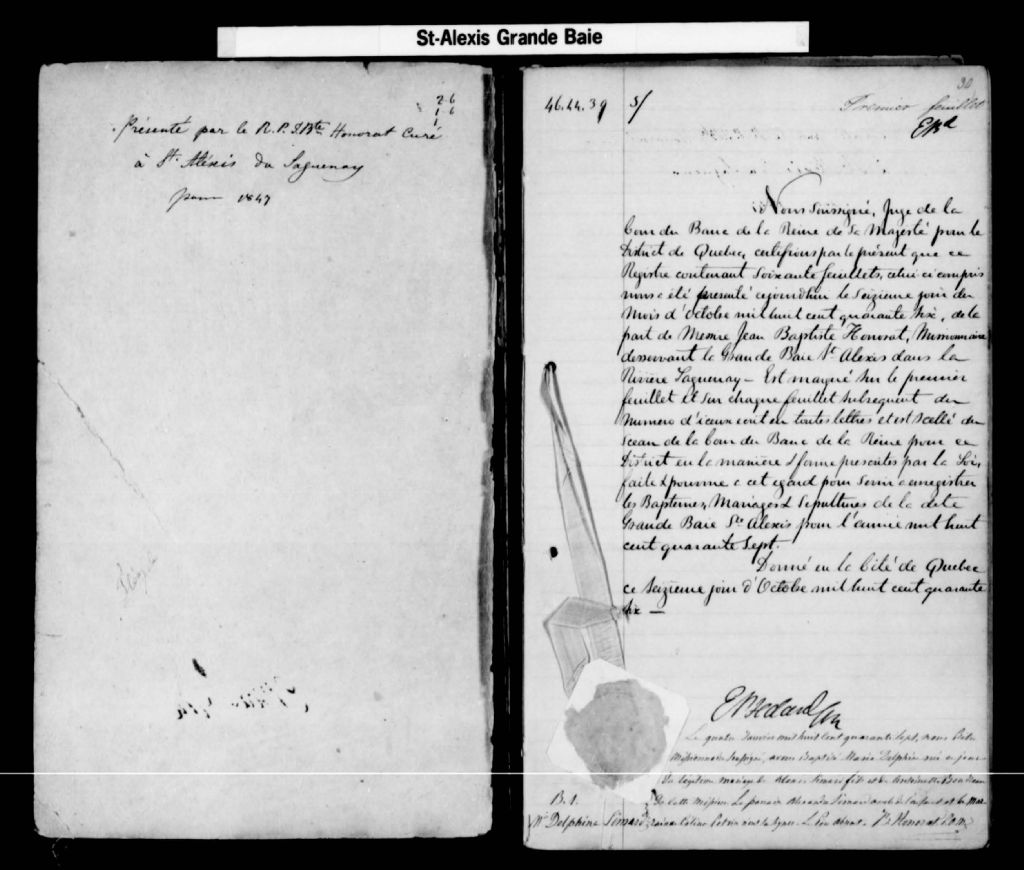 St-Alexis Grande Baie
26
16
1
Présenté par le R.P. J.Bte Honorat Curé
à St. Alexis du Saguenay
pour 1847
30
46.44.39 S/ Premier feuillet
EBd
Nous Soussigné, Juge de la
Cour du Banc de la Reine de Sa Majesté pour le
District de Quebec, certifions par le présent que ce
Registre contenant Soixante feuillets, celui ci compris
nous a été presenté aujourdhui le Seizieme jour du
Mois d'Octobre mil huit cent quarante six, de la
part de Messire Jean Baptiste Honorat, Missionnaire
desservant la Grande Baie St Alexis dans la
Riviere Saguenay - Est marqué sur le premier
feuillet et sur chaque feuillet subsequent du
Numero d'iceux ecrit en toutes lettres et est Scellé du
Sceau de la Cour du Banc de la Reine pour ce
District en la maniere & forme prescrites par la Loi,
faite & pourvue a cet egard pour servir a enregistrer
les Baptemes, Mariages & Sepultures de la dite
Grande Baie St Alexis pour l'année mil huit
cent quarante Sept.
Donné en la Cité de Quebec
ce Seizieme jour d'Octobre mil huit cent quarante
six —
E Bedard
Le quatre Janvier mil huit cent quarante sept, nous Ptre
Missionnaire Soussigné, avons baptisé Marie Delphine née ce jour
du legitime mariage de Simard et de Antoinette Boudreau
B. 1. de cette Mission. Le parrain Alexandre Simard oncle de l'enfant et la mar
M. Delphine Simard raine signer. Le Pere absent. JB Honorat O.M.I.